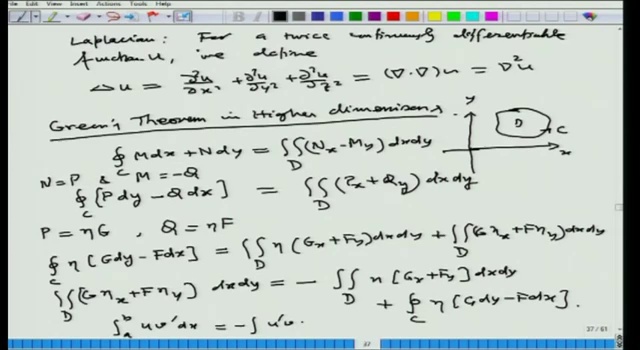 Edit View Insert Actions Tools Help
Laplacian: For a twice continuously differentiable
function u, we define
Δu = ∂²u/∂x² + ∂²u/∂y² + ∂²u/∂z² = (∇·∇)u = ∇²u
Green's Theorem in Higher dimensions
∮_C Mdx + Ndy = ∬_D (N_x - M_y) dxdy
y D C x
N = P & M = -Q
∮_C [Pdy - Qdx] = ∬_D (P_x + Q_y) dxdy
P = ηG, Q = ηF
∮_C η[Gdy - Fdx] = ∬_D η(G_x + F_y) dxdy + ∬_D (Gη_x + Fη_y) dxdy
∬_D (Gη_x + Fη_y) dxdy = - ∬_D η[G_x + F_y] dxdy
+ ∮_C η[Gdy - Fdx].
∫_a^b uv'dx = -∫u'v.
37 / 61
37